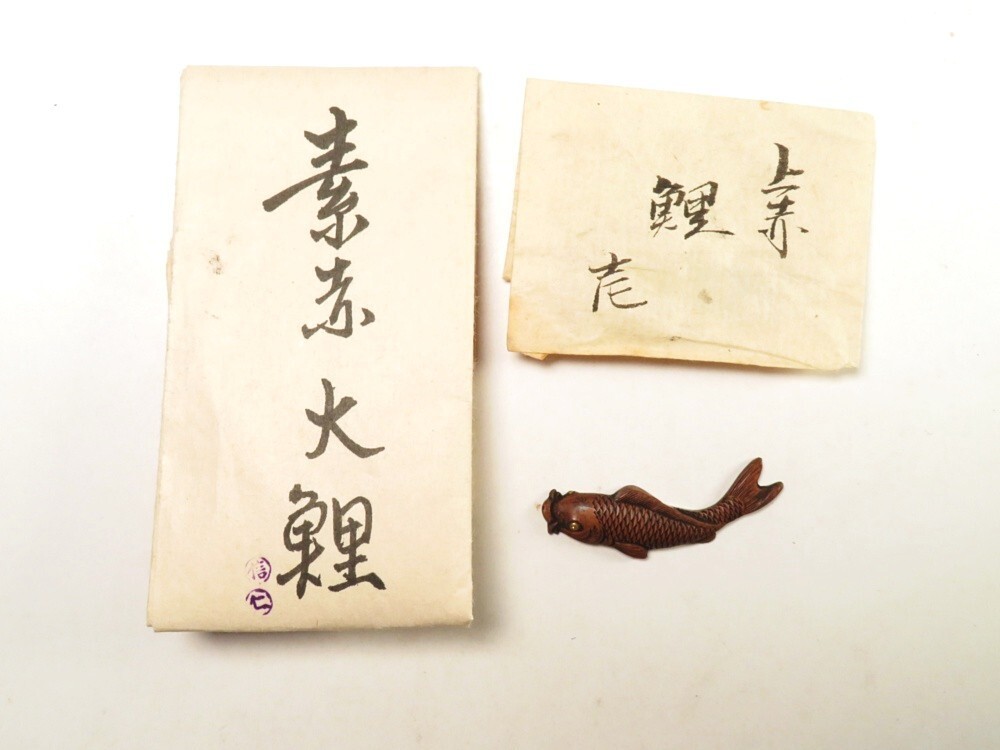 素赤大鯉
信
七
上赤
鯉
壱